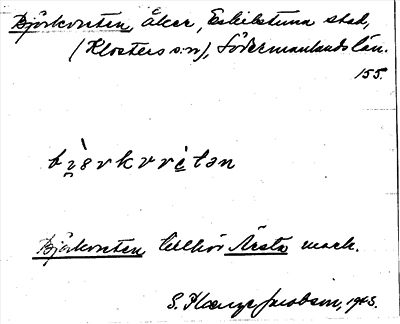 Björkvreten, åker, Eskilstuna stad,
(Klosters s:n), Södermanlands län.
155.
bi̯ö̀rkvrètan
Björkvreten tillhör Årsta mark.
S. 1943.